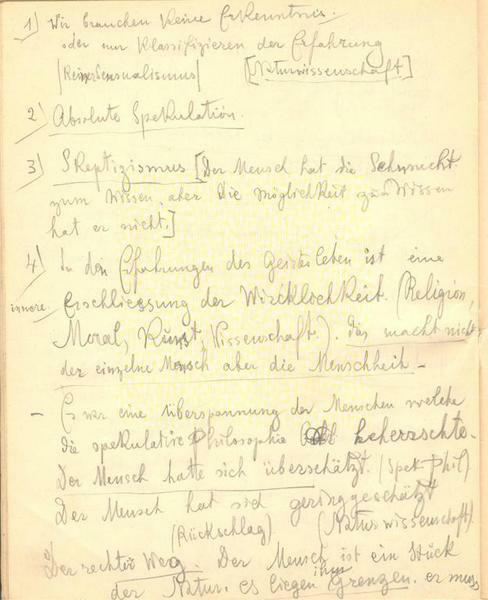 1) Wir brauchen keine Erkenntnis.
oder nur Klassifizieren der Erfahrung
[Reiner Sensualismus] [Naturwissenschaft]
2) Absolute Spekulation.
3) Skeptizismus [Der Mensch hat die Sehnsucht
zum Wissen, aber die Möglichkeit zum Wissen
hat er nicht.]
4) In den Erfahrungen des Geisteslebens ist eine
innere Erschliessung der Wirklichkeit. (Religion,
Moral, Kunst, Wissenschaft.). Das macht nicht
der einzelne Mensch aber die Menschheit -
- Es war eine Überspannung der Menschen welche
die spekulative Philosophie beherrschte.
Der Mensch hatte sich überschätzt. (Spek. Phil)
Der Mensch hat sich geringgeschätzt
(Rückschlag) (Naturwissenschaft)
Der rechte Weg. Der Mensch ist ein Stück
der Natur. es liegen ihm Grenzen. er muss